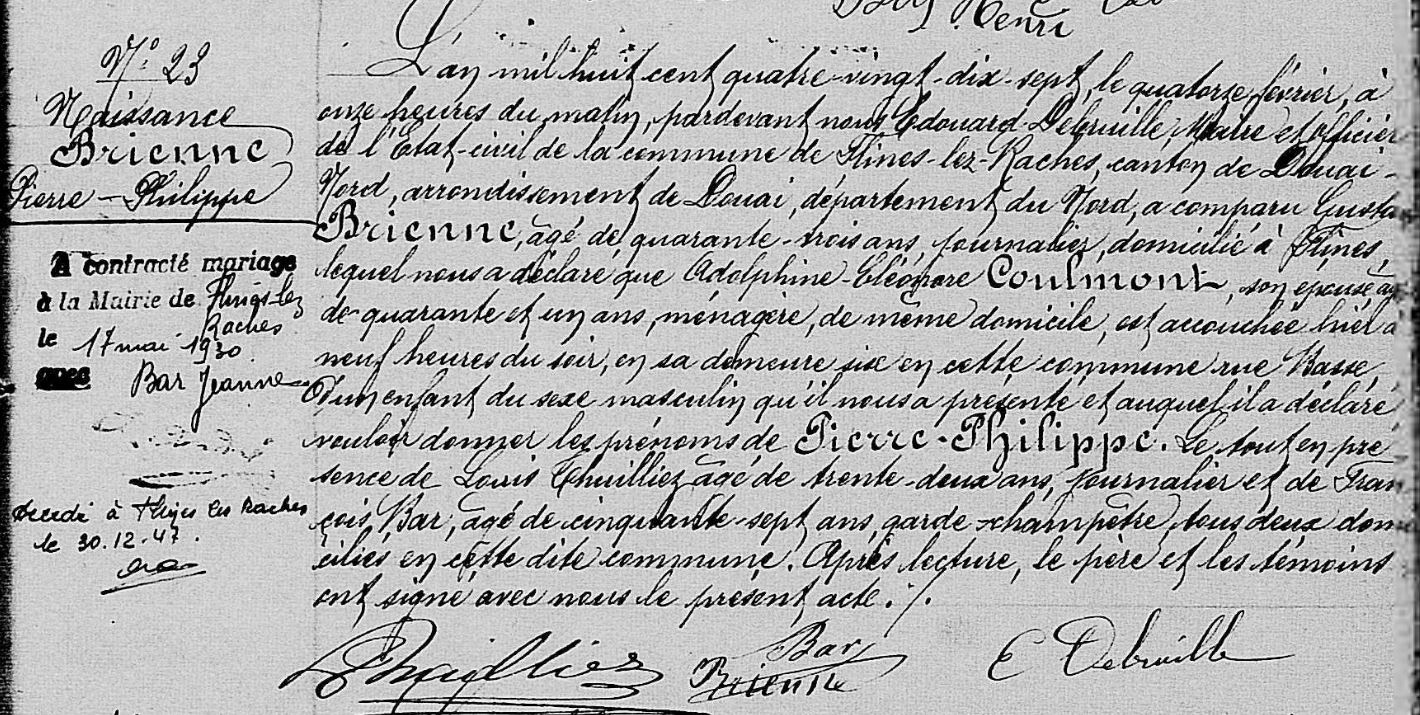 Henri
N° 23
Naissance
Brienne
Pierre-Philippe
A contracté mariage
à la Mairie de Flines-lez
Raches
le 17 mai 1930
avec Bar Jeanne
décédé à Flines les Raches
le 30.12.47.
L'an mil huit cent quatre-vingt-dix-sept, le quatorze février, à
onze heures du matin, pardevant nous Edouard Debruille, Maire et officier
de l'Etat-civil de la commune de Flines-lez-Raches, canton de Douai-
Nord, arrondissement de Douai, département du Nord, a comparu Gusta
Brienne, âgé de quarante-trois ans, journalier, domicilié à Flines,
lequel nous a déclaré que Adolphine-Eléonore Coulmont, son épouse âg
de quarante et un ans, ménagère, de même domicile, est accouchée hier à
neuf heures du soir, en sa demeure sise en cette commune rue Basse
D'un enfant du sexe masculin qu'il nous a présenté et auquel il a déclaré
vouloir donner les prénoms de Pierre-Philippe. Le tout en pré
sence de Louis Thuilliez âgé de trente-deux ans, journalier et de Fran
çois Bar, âgé de cinquante-sept ans, garde-champêtre, tous deux domi
ciliés en cette dite commune. Après lecture, le père et les témoins
ont signé avec nous le présent acte ./.
Thuilliez
Bar
Brienne
E Debruille